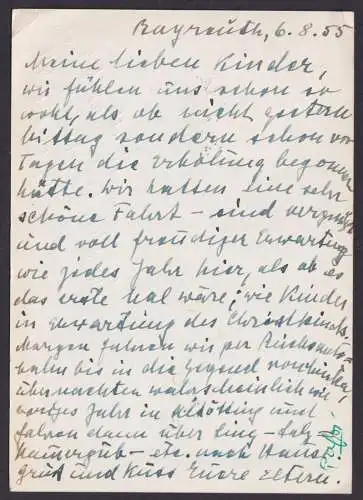 Bayreuth, 6.8.55
Meine lieben Kinder,
wir fühlen uns schon so
wohl, als ob nicht gestern
Mittag sondern schon vor
Tagen die Erholung begonnen
hätte. Wir hatten eine sehr
schöne Fahrt – sind vergnügt
und voll freudiger Erwartung
wie jedes Jahr hier, als ob es
das erste Mal wäre; wie Kinder
in Erwartung des Christkinds.
Morgen fahren wir per Reichsauto=
bahn bis in die Gegend von
übernachten wahrscheinlich wie
Jahr in Altötting und
fahren dann über Linz – Salz
etc. nach Hause
Gruß und Kuss Eure Eltern.